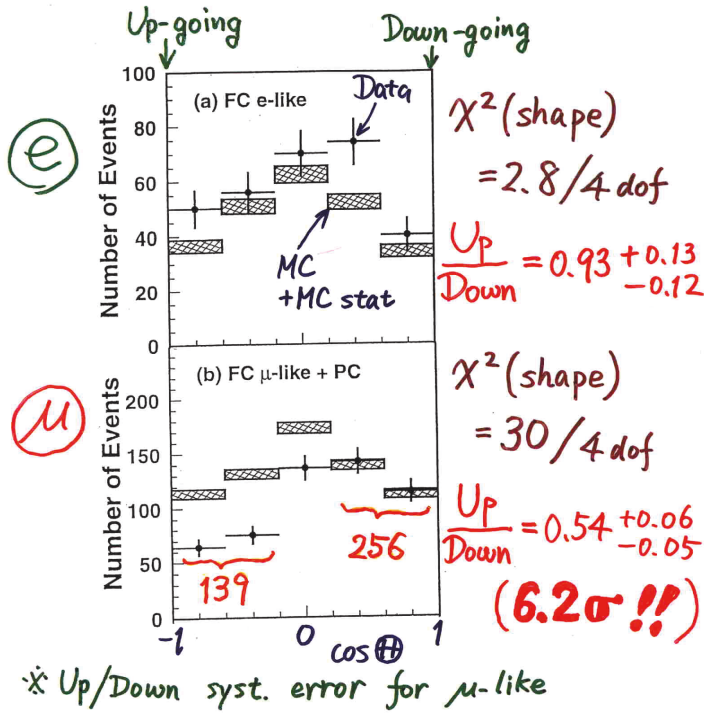 Up-going
Down-going
e
(a) FC e-like
Data
MC
+MC stat
Number of Events
100
80
60
40
20
0
χ² (shape)
= 2.8/4 dof
Up/Down = 0.93 +0.13 −0.12
μ
(b) FC μ-like + PC
Number of Events
200
150
100
50
0
139
256
-1 0 1
cos Θ
χ² (shape)
= 30/4 dof
Up/Down = 0.54 +0.06 −0.05
(6.2σ!!)
※ Up/Down syst. error for μ-like